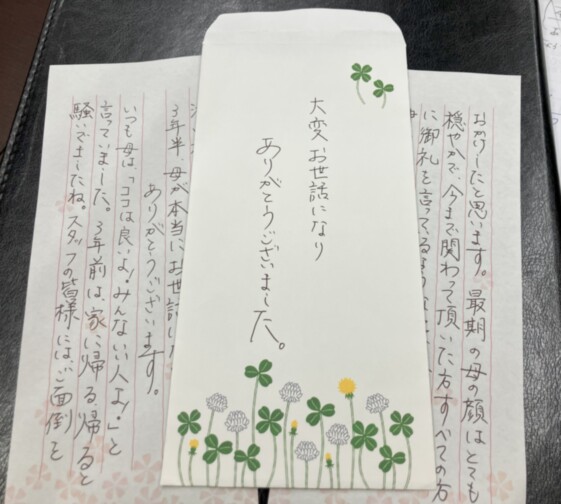 おかけしたと思います。最期の母の顔はとても
穏やかで、今まで関わって頂いた方すべての方
に御礼を言っているような
大変お世話になり
ありがとうございました。
3年半、母が本当にお世話に
ありがとうございます。
いつも母は「ココは良いよ!みんないい人よ!」と
言っていました。3年前は、家に帰る帰ると
騒いでましたね。スタッフの皆様にはご面倒を